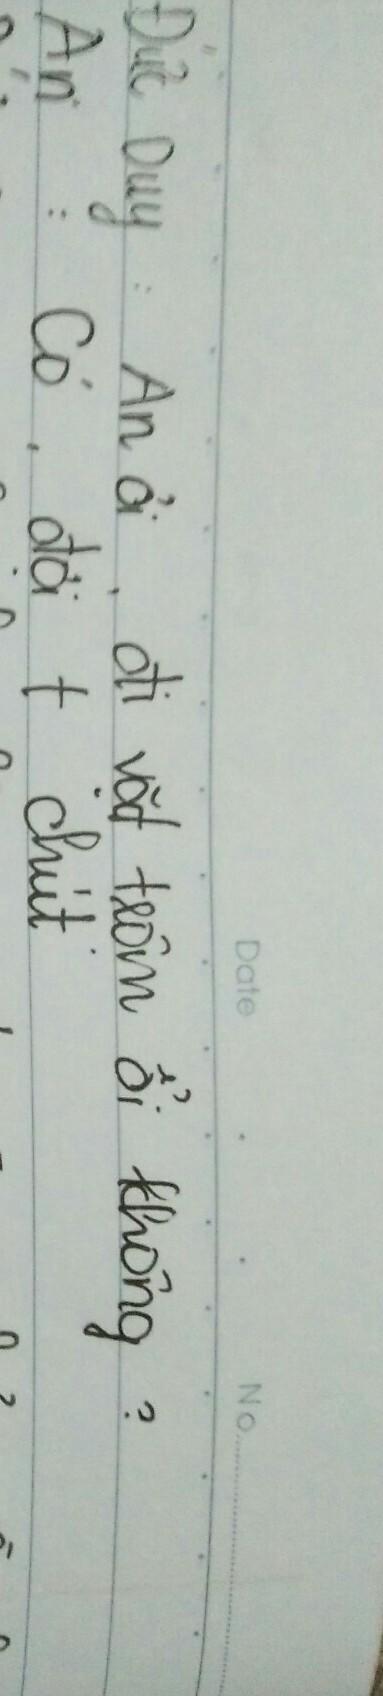 Date No.
Đức Duy : An ơi, đi vặt trộm ổi không ?
An : Có, đợi t chút